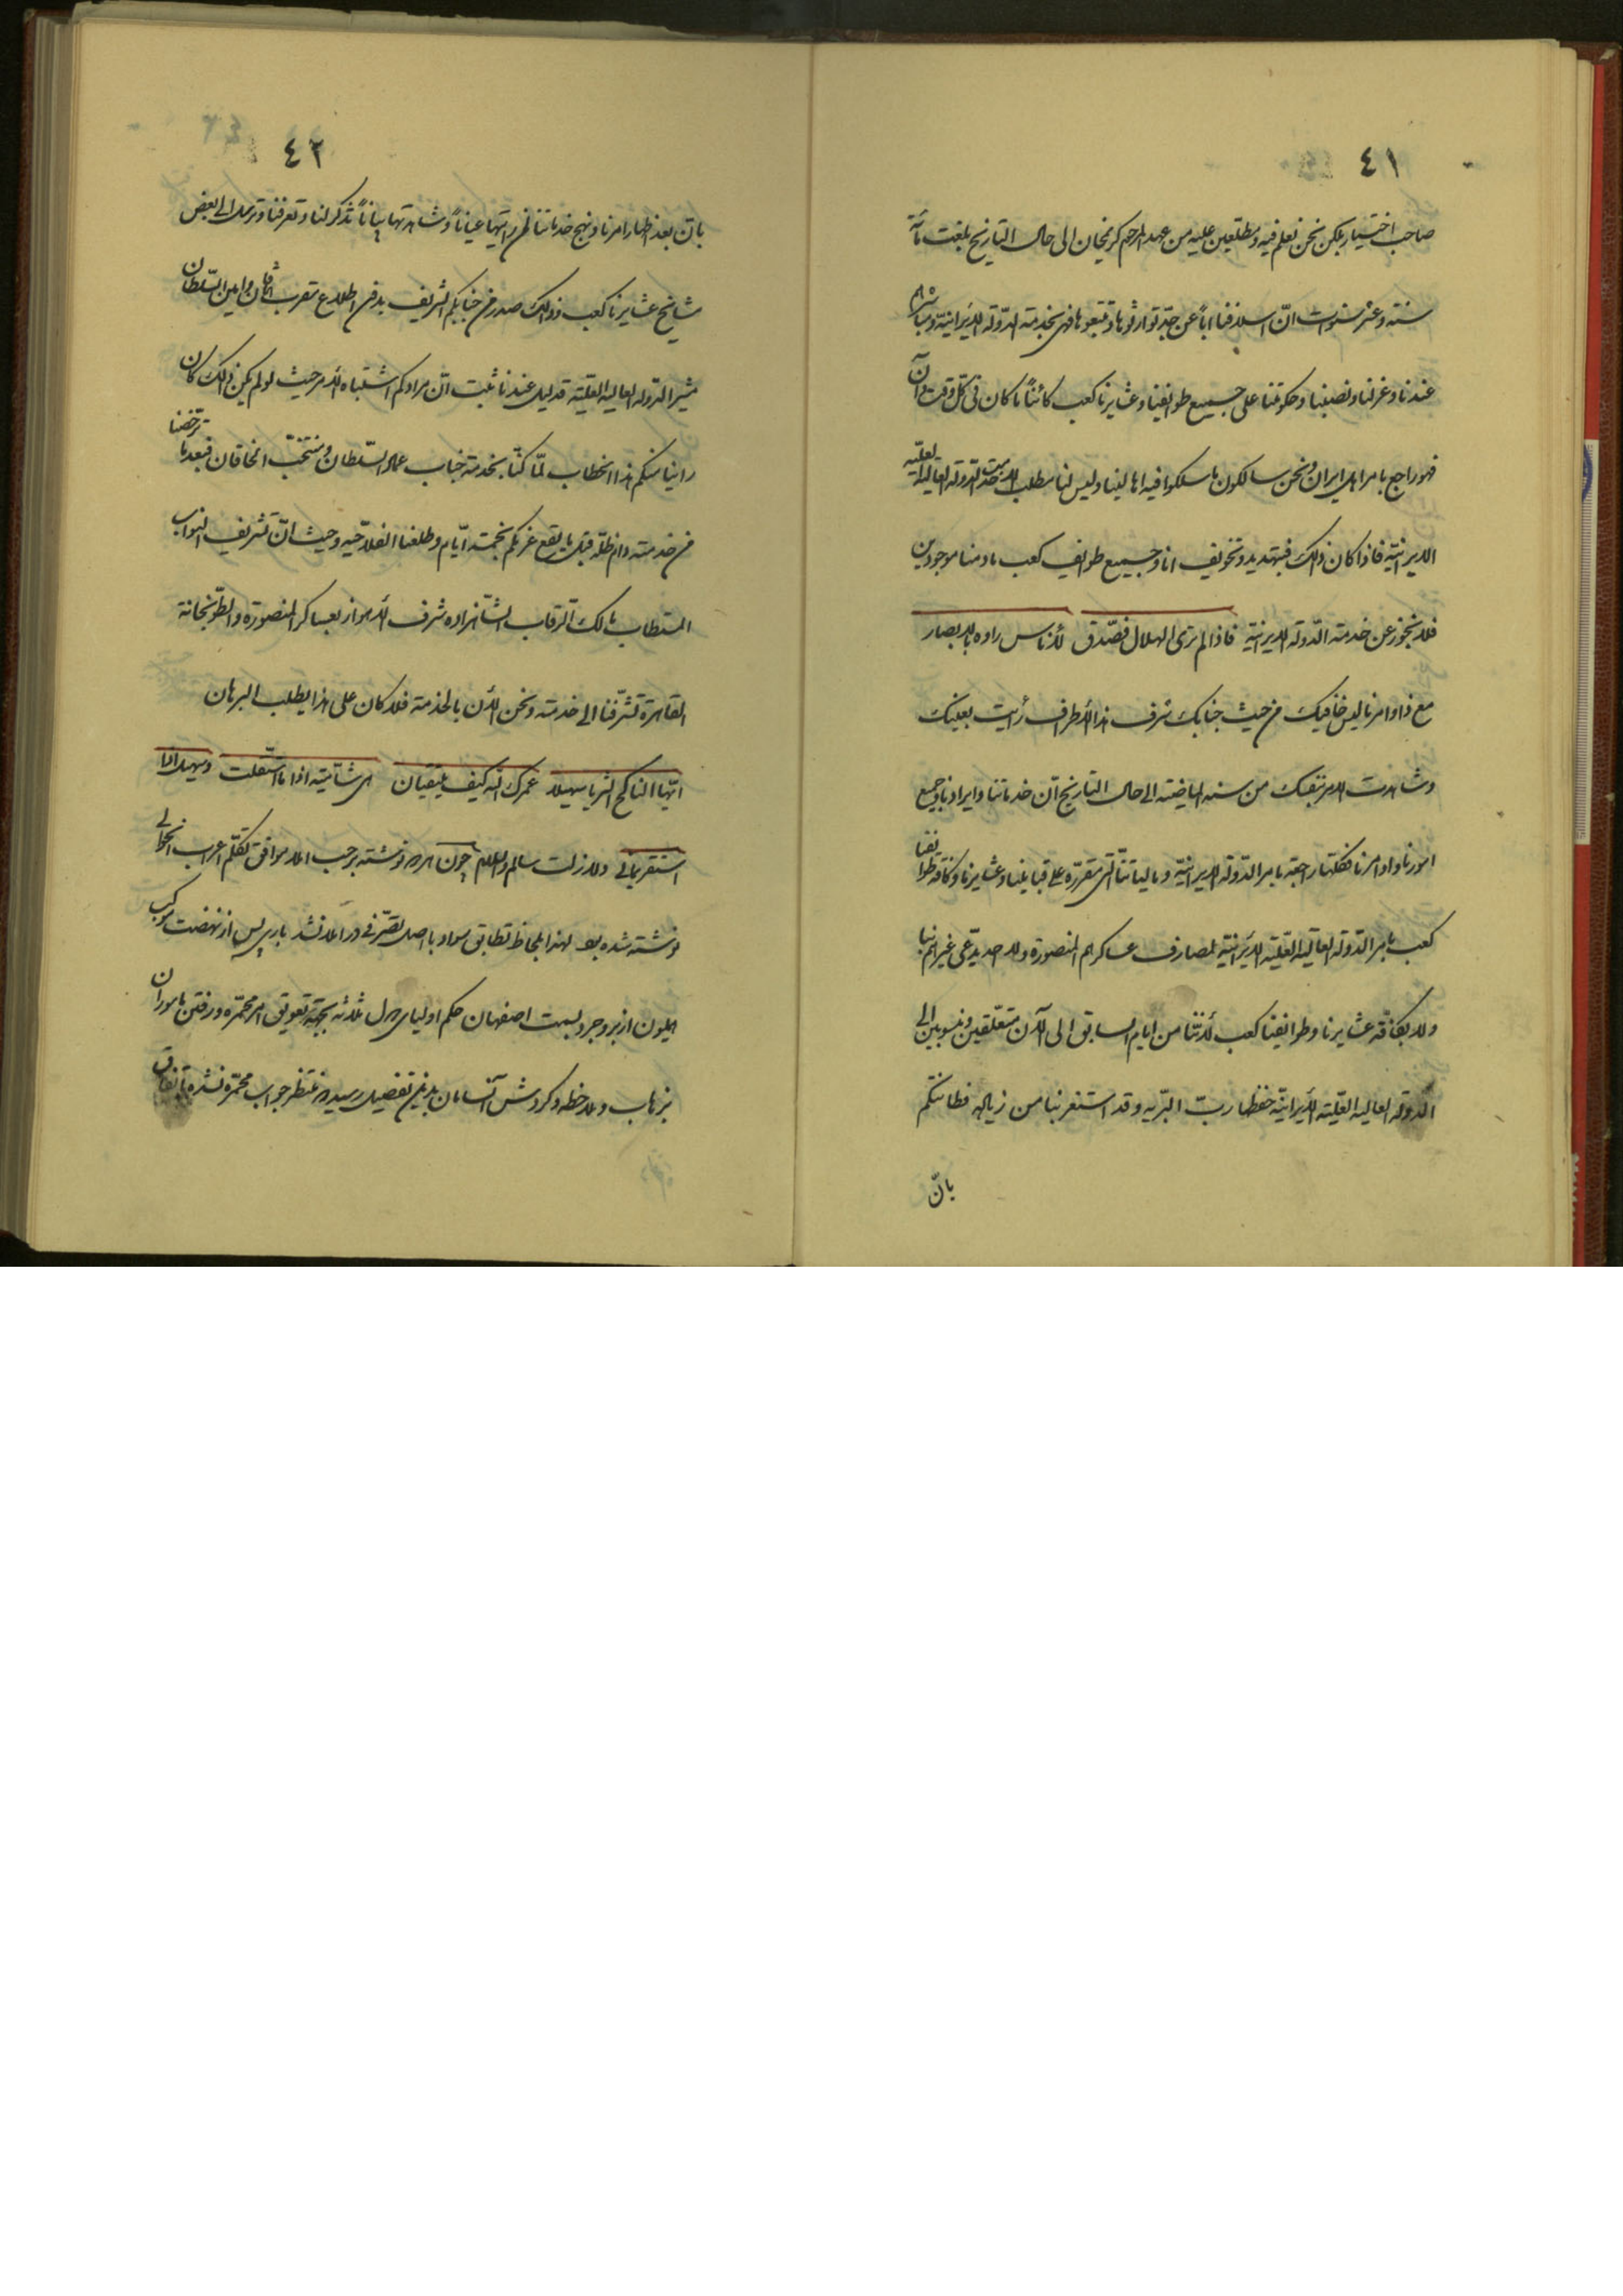 ٤١
صاحب اختیار بلکن نحن نعلم فیه و مطلعین علیه من عهد المرحوم کریمخان الی حال التاریخ بلغت مأة
سنة و عشر سنوات انّ اسلافنا اباً عن جدّ توارثوها و تتبعوها فهی بخدمة الدّولة الایرانیّة و مباشرا
عندنا و عزلنا و نصبنا و حکومتنا علی جمیع طوایفنا و عشایرنا کعب کائناً ما کان فی کلّ وقت و آن
فهو راجع بامر اهل ایران و نحن سالکون ما سلکوا فیه اهالینا و لیس لنا مطلب الا خدمت الدّولة العالیة العلّیه
الایرانیّة فاذا کان ذلک فبتهدید و تخویف انا و جمیع طوایف کعب مادمنا موجودین
فلا نجوز عن خدمة الدّولة الایرانیّة فاذا لم تری الهلال فصّدق لأناس راوه بالابصار
مع ذا و امرنا لیس خافیک من حیث جنابک شرف هذا الأطراف رأیت بعینک
و شاهدت الامر بنفسک من سنه الماضیة الی حال التاریخ انّ خدماتنا و ایرادنا و جمیع
امورنا و اوامرنا فکلّها راجعة بامر الدّولة الایرانیّة و مالیاتنا الّتی مقرّره علی قبایلنا و عشایرنا و کافة طوایفنا
کعب بامر الدّولة العالیة العلّیة الایرانیّة لمصارف عساکرهم المنصورة و لا احد یدّعی غیرهم بنا
و لا بکافّة عشایرنا و طوایفنا کعب لأنّنا من ایام السابق الی الآن متعلّقین و منسوبین الی
الدّولة العالیة العلّیة الأیرانیّة حفظها ربّ البرّیه و قد استغربنا من زیاله فطانتکم
بانّ
٤٢
بانّ بعد اظهار امرنا و نهج خدماتنا لمن رایتها عیاناً و شاهدتها بیاناً تذکر لنا و تعرفنا و ترسل الی بعض
مشایخ عشایرنا کعب و ذالک صدر من جنابکم الشریف بدون اطلاع مقرب الخاقان و امین السّلطان
مشیر الدّولة العالیة العلّیة قد لیل عندنا ثبت انّ مرادکم اشتباه الأمر حیث لو لم یکن ذالک کان
راینا منکم هذا الخطاب لمّا کنّا بخدمة جناب عماد السّلطان و منتخب الخاقان فبعد ما ترخّصنا
من خدمته دام ظلّه قبل ما یقع عزمکم بخمسة ایّام و طلعنا الفلاحیه و حیث انّ تشریف النواب
المستطاب مالک الرّقاب الشاهزاده شرف الأهواز بعساکر المنصورة و الطّوپخانة
القاهرة تشرّفنا الی خدمته و نحن الأن بالخدمة فلا کان علی هذا یطلب البرهان
ایّها الناکح الثریا سهیلا عمرک الله کیف یلتقیان هی شامّیّة اذا ما استقلّت و سهیل اذا
استقر یمانی و لا زلت سالم والسلام چون اهره نوشته برحب املا موافق تکلّم اعراب انحوالی
نوشته شده بود لهذا بلحاظ تطابق سواد با اصل تصرّفی در املا نشد باری پس از نهضت موکب
همایون از بروجرد بسمت اصفهان حکم اولیای دول ثلاثه بجهة تعویق امر محمّره و رفتن مأموران
بزهاب و ملاحظه و گردش آنسامان بدین تفصیل رسیده منتظر جواب محمّره نشده باتفاق